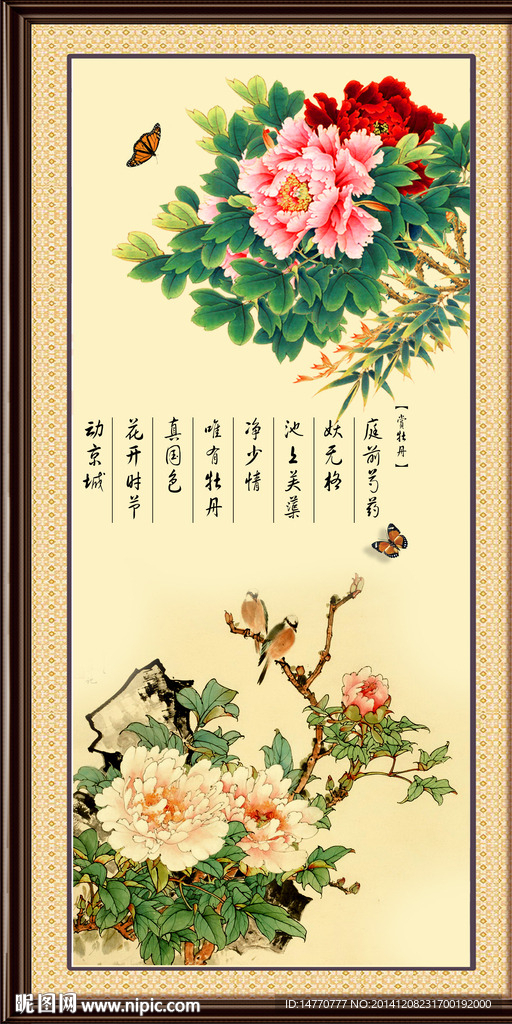 【赏牡丹】
庭前芍药
妖无格
池上芙蕖
净少情
唯有牡丹
真国色
花开时节
动京城
昵图网 www.nipic.com
ID:14770777 NO:20141208231700192000